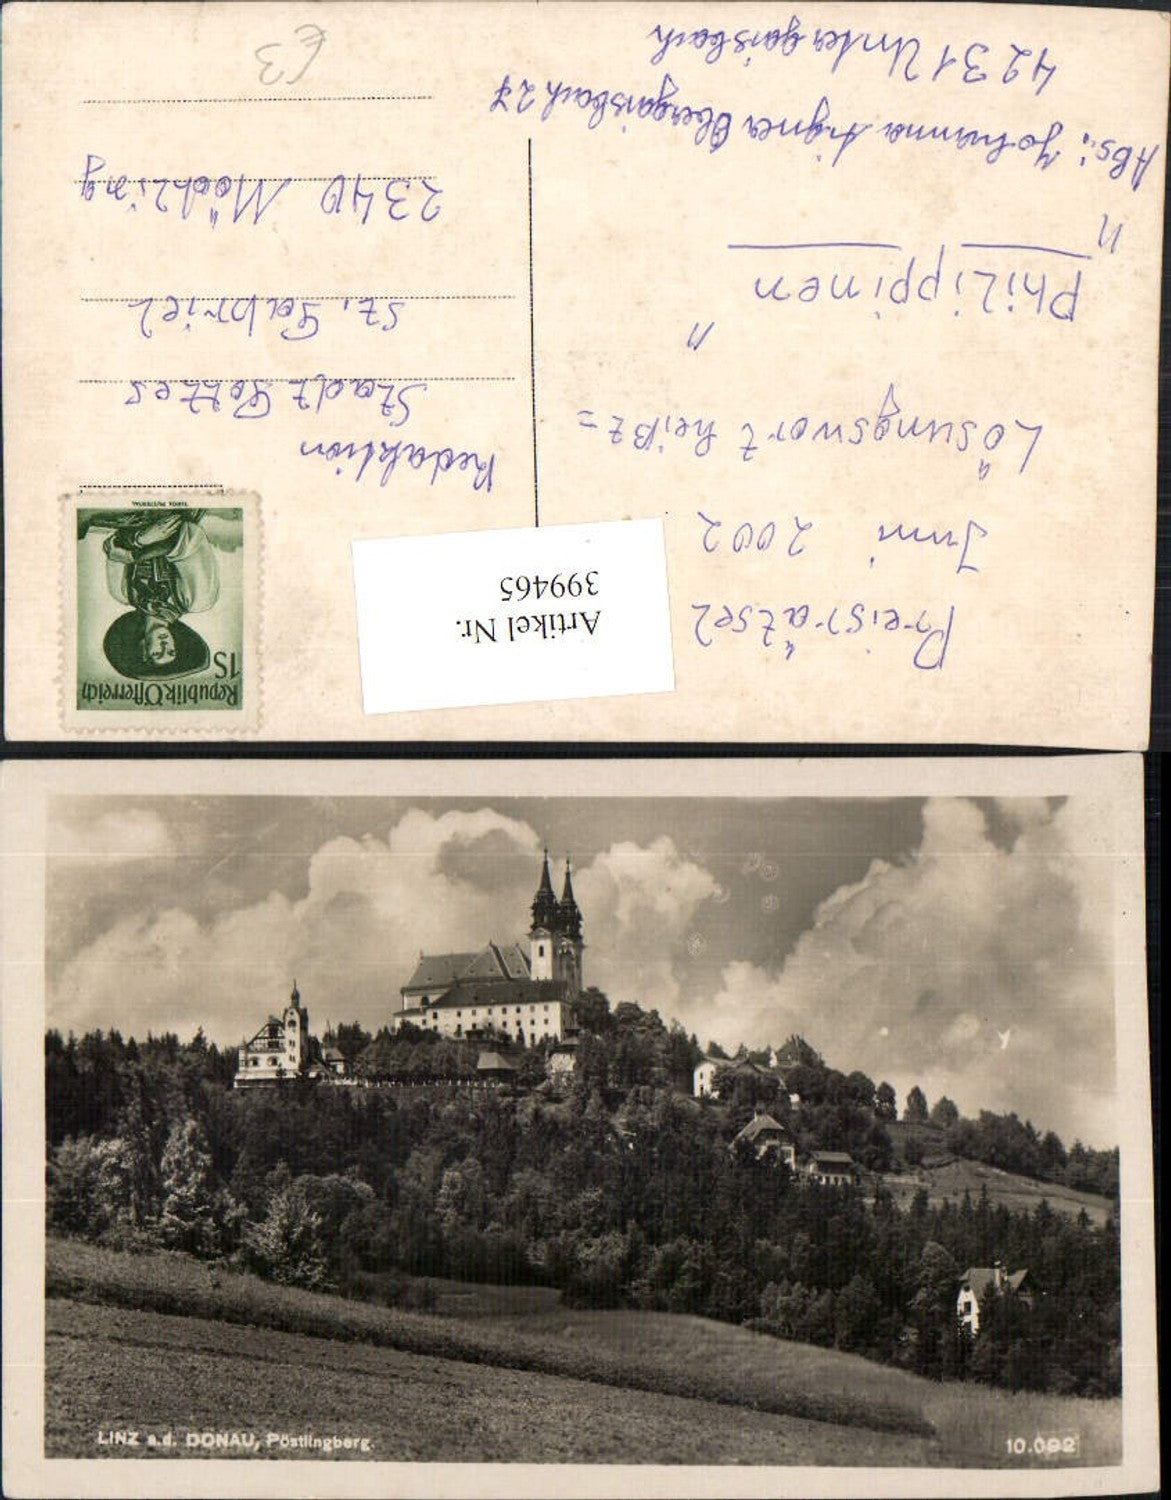 Preisrätsel
Juni 2002
Lösungswort heißt =
"
Philippinen
"
Abs.: Johanna Aigner Obergaisbach 27
4231 Untergaisbach
Artikel Nr.
399465
Republik Österreich
1S
TIROL PUSTERTAL
Redaktion
Stadt Gottes
St. Gabriel
2340 Mödling
€3
LINZ a.d. DONAU, Pöstlingberg.
10.092